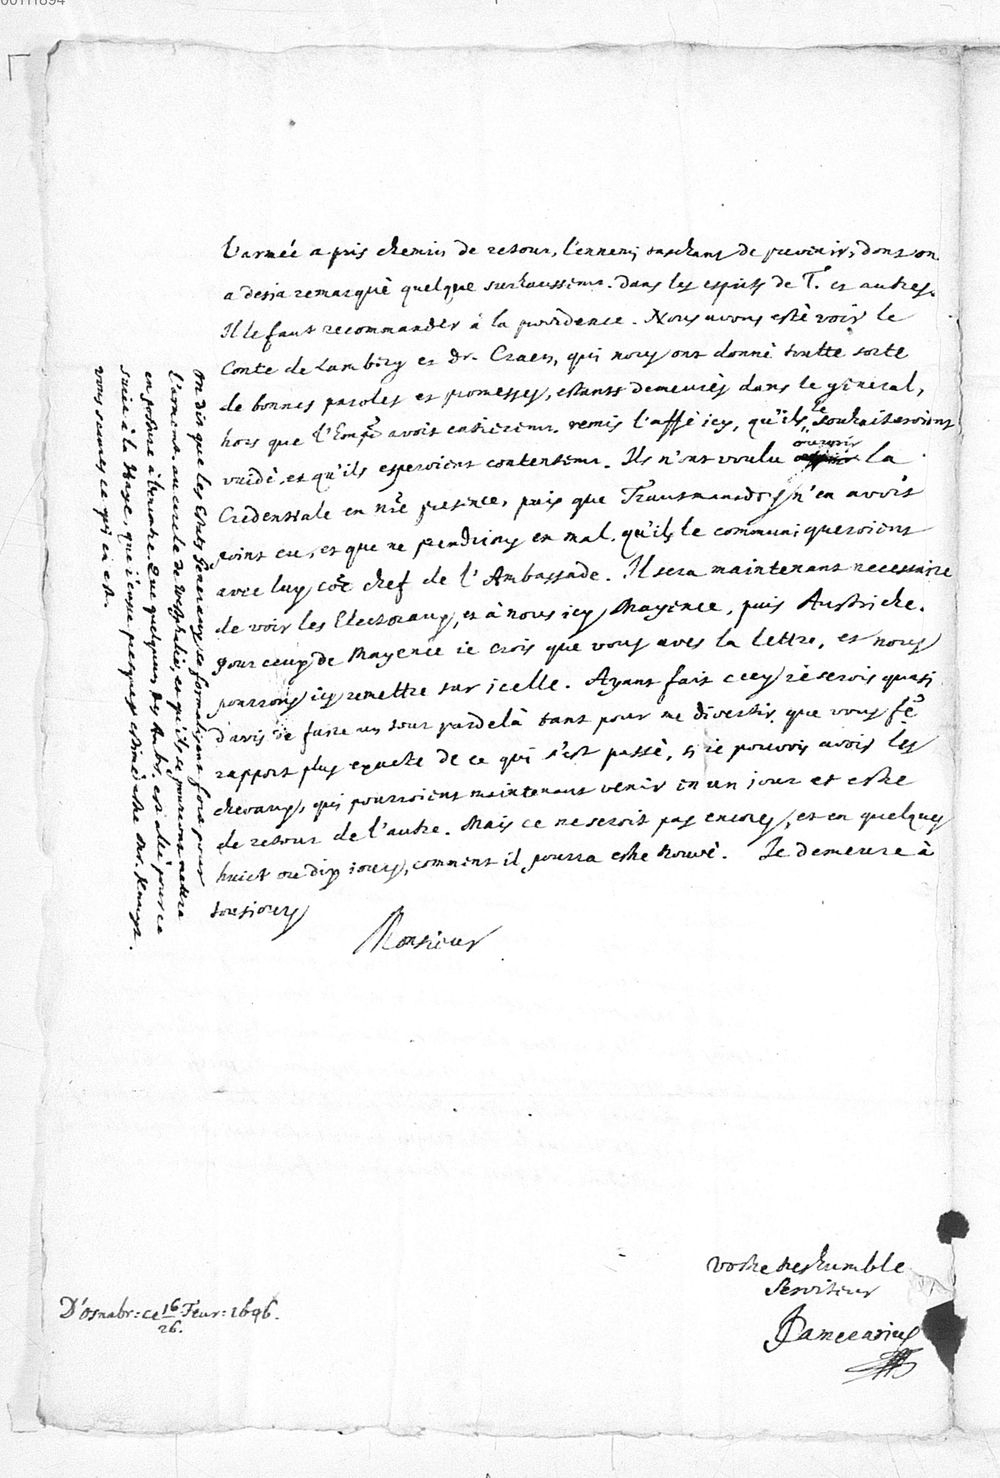 00111894
L'armée a pris chemin de retour, l'ennemi taschant de prevenir, dont on
a desia remarqué quelque surhaussem. dans les esprits de T. et autres.
Il le faut recommander à la providence. Nous avons esté voir le
Conte de Lamberg et Dr. Craen, qui nous ont donné toutte sorte
de bonnes paroles et promesses, estants demeurés dans le general,
hors que l'Empr avoit entierem. remis l'affe icy, qu'ils le souhaiteroient
vuidé, et qu'ils esperoient contentem. Ils n'ont voulu ouvrir la
Credentiale en nre presence, puis que Trautmansdorf n'en avoit
point eu, et que ne prendrions en mal, qu'ils le communiqueroient
avec luy coe chef de l'Ambassade. Il sera maintenant necessaire
de voir les Electoraux, et à nous icy Mayence, puis Austriche.
Pour ceux de Mayence ie crois que vous aves la lettre, et nous
pourrons icy remettre sur icelle. Ayant fait cecy ie serois quasi
d'avis de faire un tour pardelà tant pour me divertir que vous fe
rapport plus exacte de ce qui s'est passé, si ie pouvois avois les
chevaux, qui pourroient maintenant venir en un jour et estre
de retour de l'autre. Mais ce ne seroit pas encores, et en quelques
huict ou dix iours, comment il pourra estre trouvé. Je demeure à
tousiours
Monsieur
On dit que les Estats Generaux se formalisent fort pour
l'armem. au cercle de Westphalie, et qu'ils se pourront mettre
en posture à l'encontre. Que quelqu'un des Ambr. est allé pour ce
suiet à la Haye, que i'ense presques estime estre Mr. Knuyt.
vous saures ce qu'il en est.
vostre treshumble
Serviteur
D'Osnabr: ce 16/26. Feur: 1646.